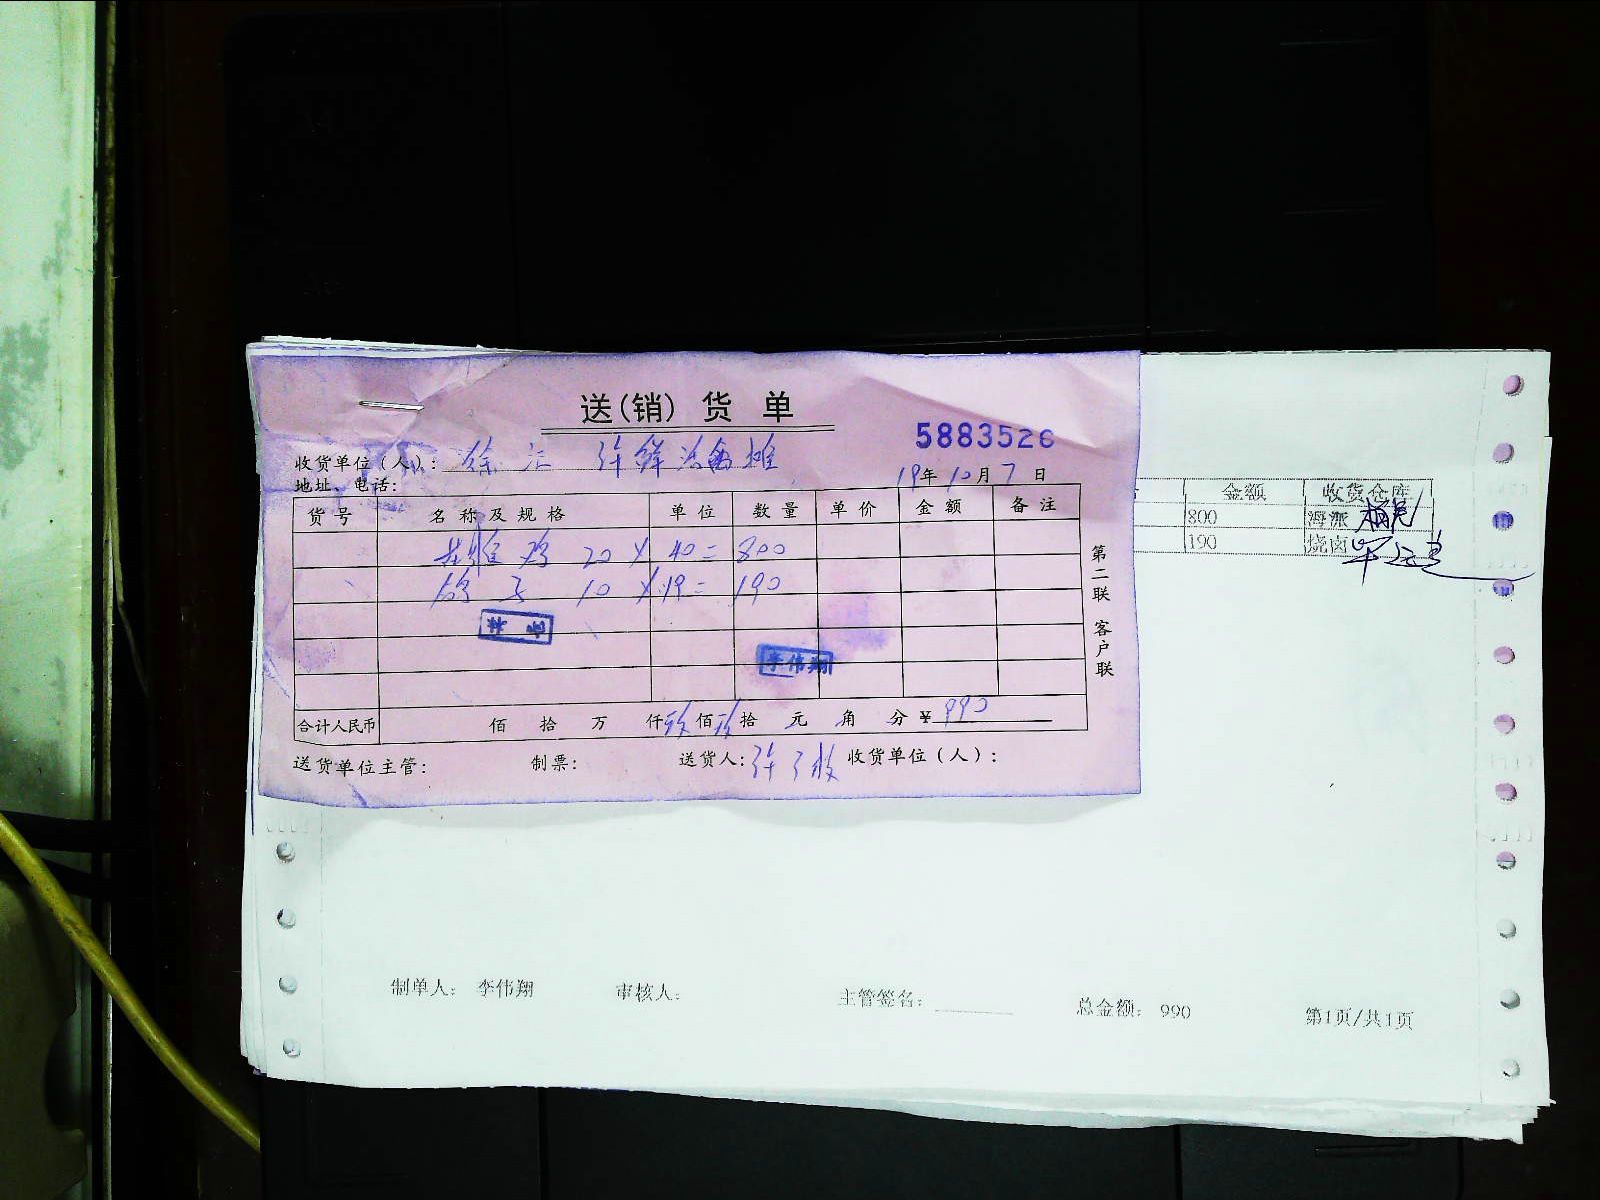 送(销)货单
5883526
收货单位(人): 徐汇 许鲜活禽摊
地址、电话:
19年10月7日
货号 名称及规格 单位 数量 单价 金额 备注
鸡 20 × 40 = 800
鸽子 10 × 19 = 190
李伟翔
合计人民币 佰 拾 万 仟 玖 佰 玖 拾 元 角 分 ¥ 990
送货单位主管: 制票: 送货人: 许 收货单位(人):
第二联 客户联
金额 收货仓库
800 海派
190 烧卤
制单人: 李伟翔 审核人: 主管签名: 总金额: 990 第1页/共1页